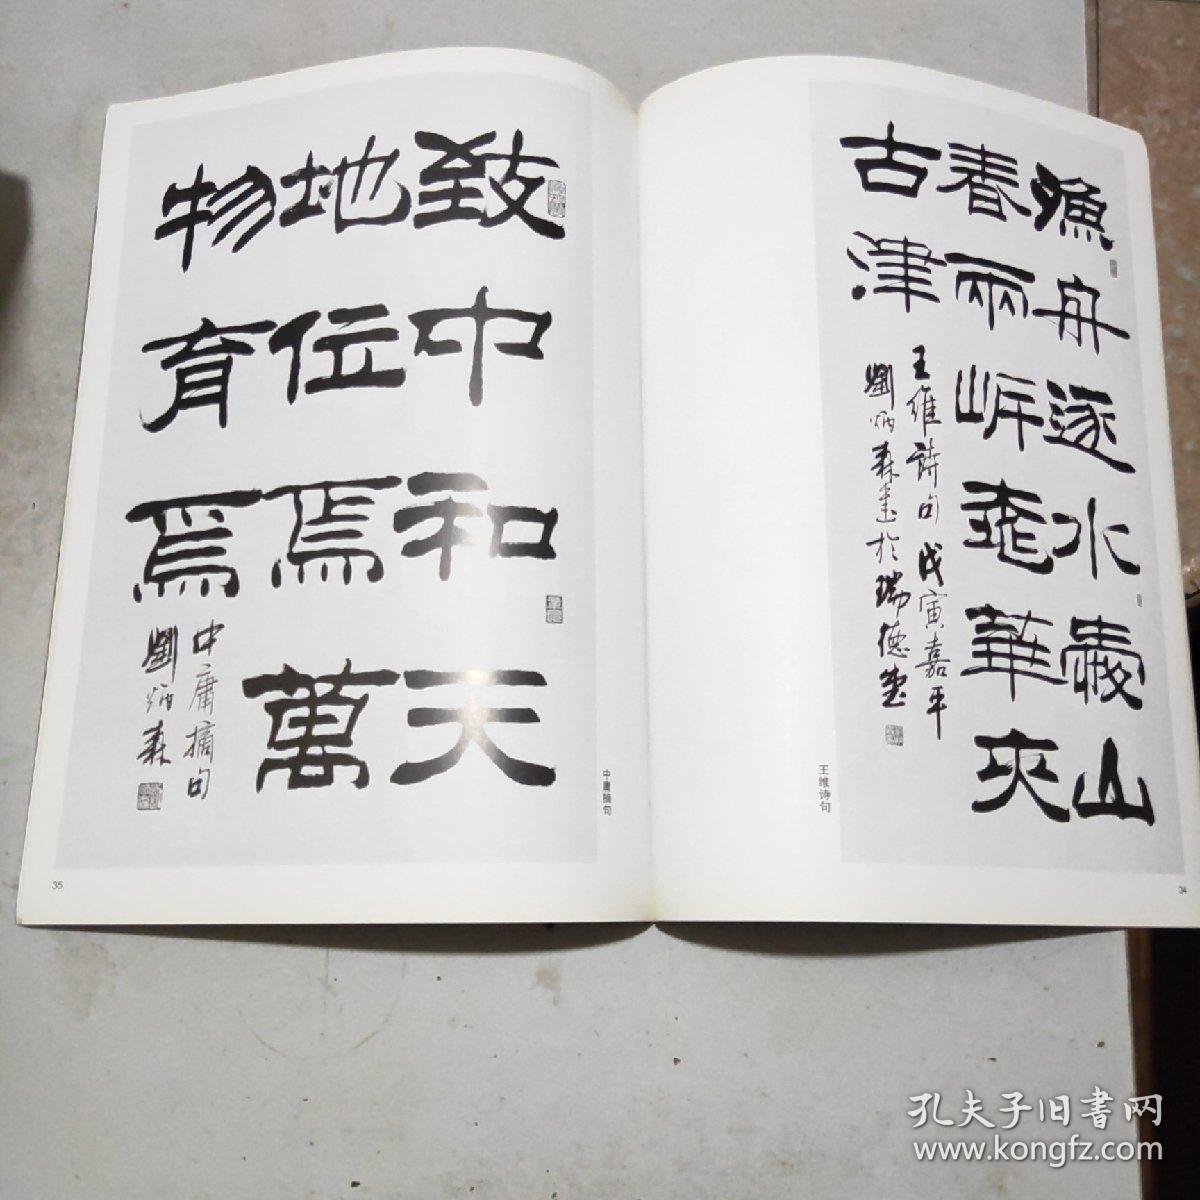 漁舟逐水愛山
春兩岸桃華夾
古津
王維詩句戊寅嘉平
劉炳森書於瑞德堂
王维诗句
34
致中和天
地位焉萬
物育焉
中庸摘句
劉炳森
中庸摘句
35
孔夫子旧书网
www.kongfz.com